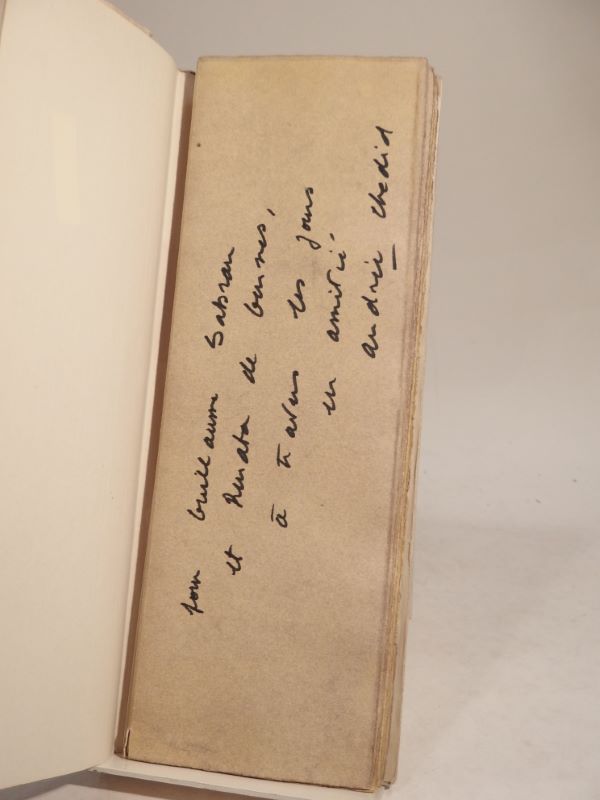 pour Guillaume Sabran
et Renata de Gennes,
à travers les jours
en amitié.
andrée chedid